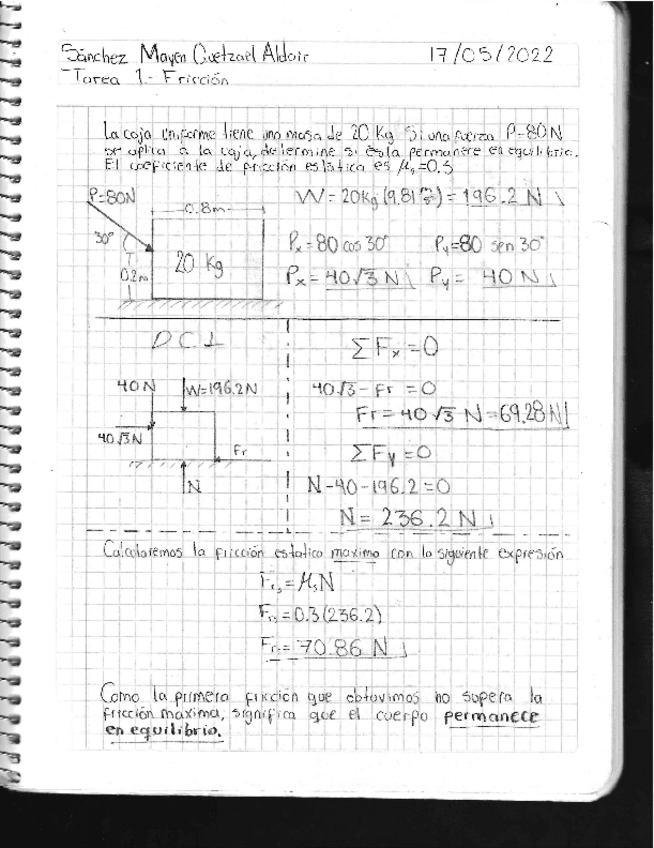 Sánchez Mayen Cuetzael Aldair 17/05/2022
Tarea 1.- Fricción
La caja uniforme tiene una masa de 20 Kg Si una fuerza P=80N
se aplica a la caja, determine si ésta permanece en equilibrio.
El coeficiente de fricción estática es μs=0.3
P=80N
0.8m
30°
0.2m
20 Kg
W=20Kg(9.81 m/s²)=196.2 N
Px=80 cos 30° Py=80 sen 30°
Px=40√3 N Py= 40N
DCL
40N W=196.2N
40√3N
Fr
N
ΣFx=0
40√3-Fr=0
Fr=40√3 N=69.28N
ΣFy=0
N-40-196.2=0
N=236.2N
Calcularemos la fricción estatico maximo con la siguiente expresión
Frs=μsN
Frs=0.3(236.2)
Frs=70.86 N
Como la primera fricción que obtuvimos no supera la
fricción máxima, significa que el cuerpo permanece
en equilibrio.